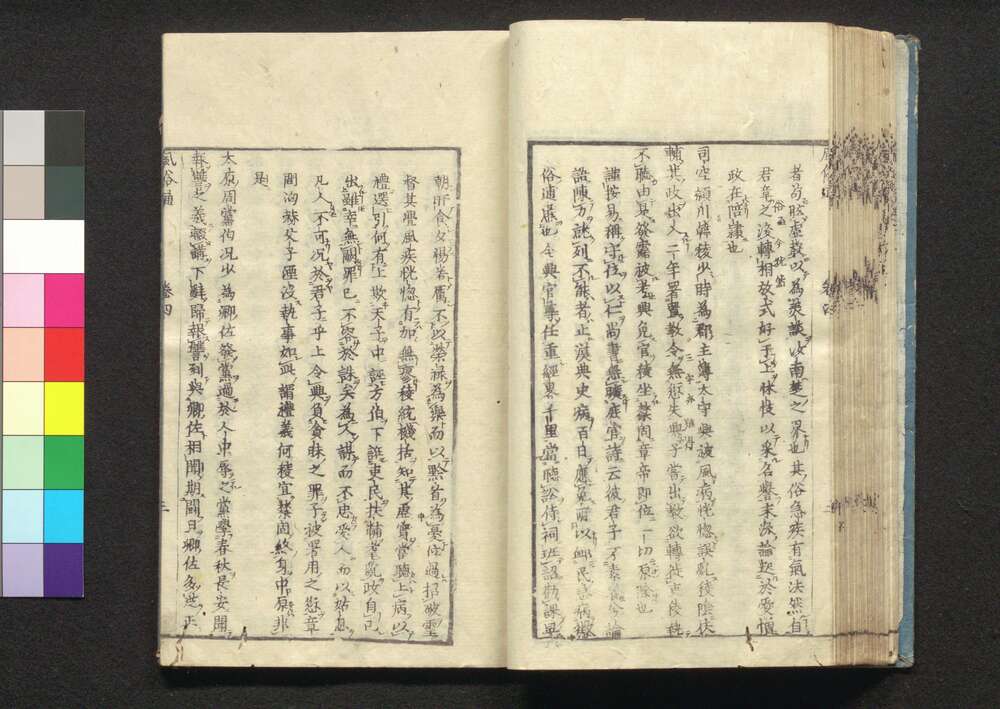 者苟眩虛教以為美談汝南楚之界也其俗急疾有氣決然自
君章之後轉相放式好干上怵忮以采名譽末流論起於愛憎
政在陪隸也
司空潁川韓稜少時為郡主簿太守興被風病恍惚誤亂稜陰扶
輔其政出入二年署置教令無愆失興子嘗出教欲轉徙吏稜執
不聽由是發露被考興免官稜坐禁固章帝即位一切原除也
謹按易稱守位以仁尚書無曠庶官詩云彼君子不素餐兮論
語陳力就列不能者止漢典吏病百日應免所以恤民急病懲
俗逋慝也今興官尊任重經略千里當聽訟侍祠班詔勸課早
朝旰食夕惕若厲不以榮祿為樂而以黔首為憂位過招殃靈
督其舋風疾恍惚有加無瘳稜統機括知其虛實當聽上病以
禮選引何有上欺天子中誣方伯下誑吏民扶輔耄亂政自己
出雖幸無闕罪已不容於誅矣為人謀而不忠愛人而以姑息
凡人不可況於君子乎上令興負貪昧之罪子被署用之愆章
問洶赫父子湮沒執事如此謂禮義何稜宜禁固終身中原非
是
太原周黨伯況少為鄉佐發黨過於人中辱之黨學春秋長安聞
報讎之義輟講下辭歸報讎到與鄉佐相聞期鬭日鄉佐多從正
風俗通
卷四
三